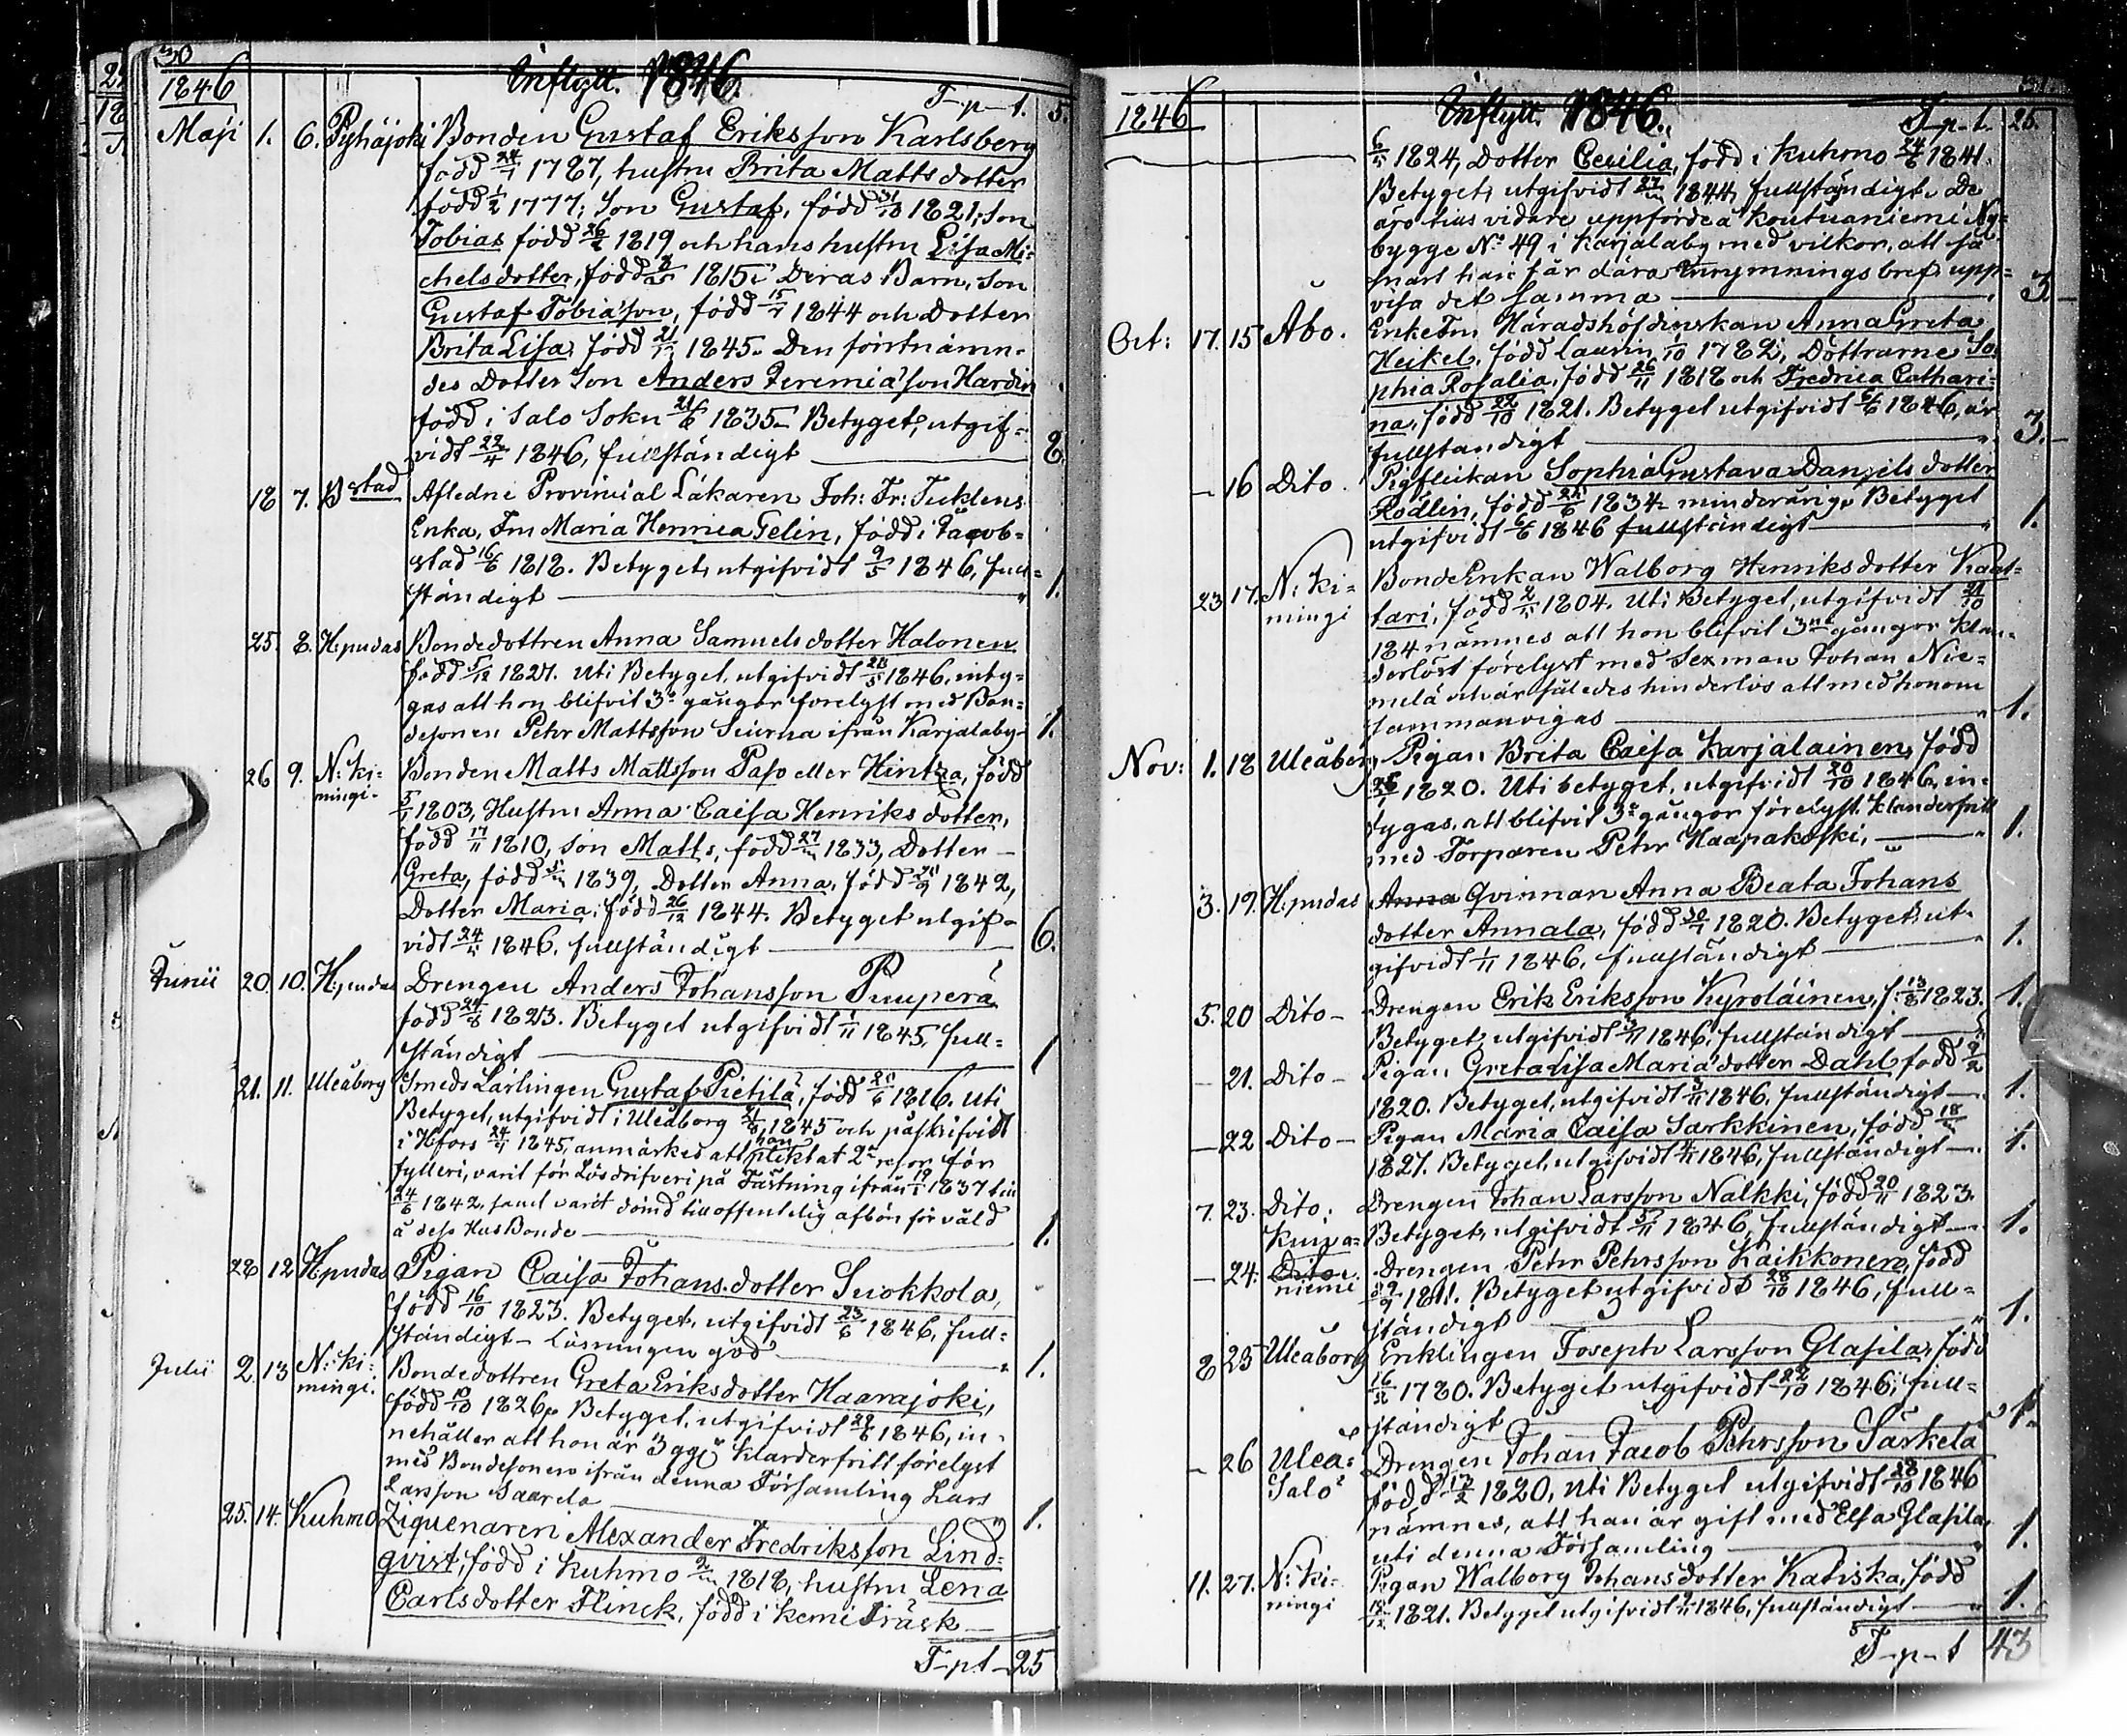 30
1846 Inflytt. 1846.
T-p-t. 5.
Maji 1. 6. Pyhäjoki Bonden Gustaf Eriksson Karlsberg
född 24/1 1787, hustru Brita Matts dotter
född 1/2 1777; Son Gustaf, född 31/10 1821; Son
Tobias född 1819 och hans hustru Lisa Mi=
chelsdotter, född 1815; Deras Barn, Son
Gustaf Tobia'son, född 1844 och Dotter
Brita Lisa, född 1845. Den förstnämn=
des Dotter Son Anders Jeremia'son Hardin
född i Salo Sokn 1835. Betyget, utgif=
vidt 22/4 1846, fullständigt 8.
18 7. Bstad Afledne Provincial Läkaren Joh: Fr: Tucklens
Enka, Fru Maria Henrica Telin, född i Jacob=
stad 16/6 1818. Betyget, utgifvidt 9/5 1846, full=
ständigt 1.
25. 8. H:pudas Bondedottren Anna Samuels dotter Halonen
född 5/12 1827. Uti Betyget, utgifvidt 1846, inty=
gas att hon blifvit 3e gångor förelyst med Bon=
desonen Pehr Mattsson Siurua ifrån Karjalaby 1.
26 9. N:ki= Bonden Matts Mattsson Paso eller Hintza, född
mingi. 1803, Hustru Anna Caisa Henriks dotter,
född 17/11 1810, Son Matts, född 1833, Dotter
Greta, född 1839, Dotter Anna, född 1842,
Dotter Maria, född 26/12 1844. Betyget utgif=
vidt 1846, fullständigt 6.
Junii 20. 10. H:pudas Drengen Anders Johansson Puuperä
född 24/8 1823. Betyget utgifvidt 1/11 1845, full=
ständigt 1
21. 11. Uleåborg Smeds Lärlingen Gustaf Pietilä, född 1816. Uti
Betyget, utgifvidt i Uleåborg 1845 och påskrifvidt
i Hfors 1845, anmärkes att han pliktat 2e resor för
fylleri, varit för Lösdrifveri på Fästning ifrån 1837 till
24/6 1842, samt varit dömd till offentelig afbön för våld
å dess HusBonde 1.
28 12 H:pudas Pigan Caisa Johans dotter Suokkola,
född 16/10 1823. Betyget, utgifvidt 23/6 1846, full=
ständigt - Läsningen god 1.
Julii 2. 13 N:ki= Bondedottren Greta Eriks dotter Haarajoki,
mingi. född 10/10 1826, Betyget, utgifvidt 1846, in=
nehåller att hon är 3 ggr klanderfritt förelyst
med Bondesonen ifrån denna Församling Lars
Larsson Saarela 1.
25. 14. Kuhmo Ziguenaren Alexander Fredriksson Lind=
qvist, född i Kuhmo 1818, hustru Lena
Carlsdotter Flinck, född i Kemi Träsk
T-pt- 25
1846 Inflytt. 1846.
T-p-t. 25.
1824, Dotter Cecilia, född i Kuhmo 24/6 1841.
Betyget, utgifvidt 1844, fullständigt. De
äro tills vidare uppförde å Koutuaniemi Ny=
bygge No 49 i Karjalaby med vilkor, att så
snart han får dära Inrymningsbref, upp=
visa det samma 3
Oct: 17. 15 Åbo. EnkeFru Häradshöfdinskan Anna Greta
Heikel, född Laurin 1782, Döttrarne So=
phia Rosalia, född 26/11 1818 och Fredrica Cathari=
na, född 22/10 1821. Betyget utgifvidt 1846, är
fullständigt 3.
- 16 Dito. Pigflickan Sophia Gustava Daniels dotter
Rödlin, född 1834, minderårig. Betyget
utgifvidt 1846 fullständigt 1.
23 17. N:ki= BondeEnkan Walborg Henriksdotter Kaat=
mingi tari, född 1804. Uti Betyget, utgifvidt
184 nämnes att hon blifvit 3ne gångor klan=
derlöst förelyst med Sexman Johan Nie=
melä och är således hinderlös att med honom
sammanvigas 1.
Nov: 1. 18 Uleåborg Pigan Brita Caisa Karjalainen, född
1820. Uti betyget, utgifvidt 20/10 1846, in=
tygas, att blifvit 3e gångor förelyst klanderfritt
med Torparen Petter Haapakoski, 1.
3. 19. H:pudas Anna Qvinnan Anna Beata Johans
dotter Annala, född 1820. Betyget, ut=
gifvidt 1/11 1846, fullständigt 1.
5. 20 Dito - Drengen Erik Eriksson Kyroläinen, f. 13/8 1823. 1.
Betyget, utgifvidt 1846, fullständigt
- 21. Dito - Pigan Greta Lisa Maria'dotter Dahl född 9/2
1820. Betyget, utgifvidt 1846, fullständigt 1.
- 22 Dito - Pigan Maria Caisa Sarkkinen, född
1827. Betyget, utgifvidt 1846, fullständigt 1.
7. 23. Dito: Drengen Johan Larsson Nalkki, född 20/11 1823.
Kuiva= Betyget, utgifvidt 1846, fullständigt 1.
- 24. Dito. Drengen Petter Pehrsson Kaikkonen, född
niemi 1811. Betyget utgifvidt 28/10 1846, full=
ständigt 1.
8 25 Uleåborg Enklingen Joseph Larsson Glasila, född
1780. Betyget utgifvidt 22/10 1846, full=
ständigt 1.
- 26 Uleå= Drengen Johan Jacob Pehrsson Särkelä
Salo född 1820, Uti Betyget utgifvidt 28/10 1846
nämnes, att han är gift med Elsa Glasila
uti denna Församling 1.
11. 27. N:ki= Pigan Walborg Johansdotter Katiska, född
mingi 1821. Betyget utgifvidt 1846, fullständigt 1.
T-p-t 43